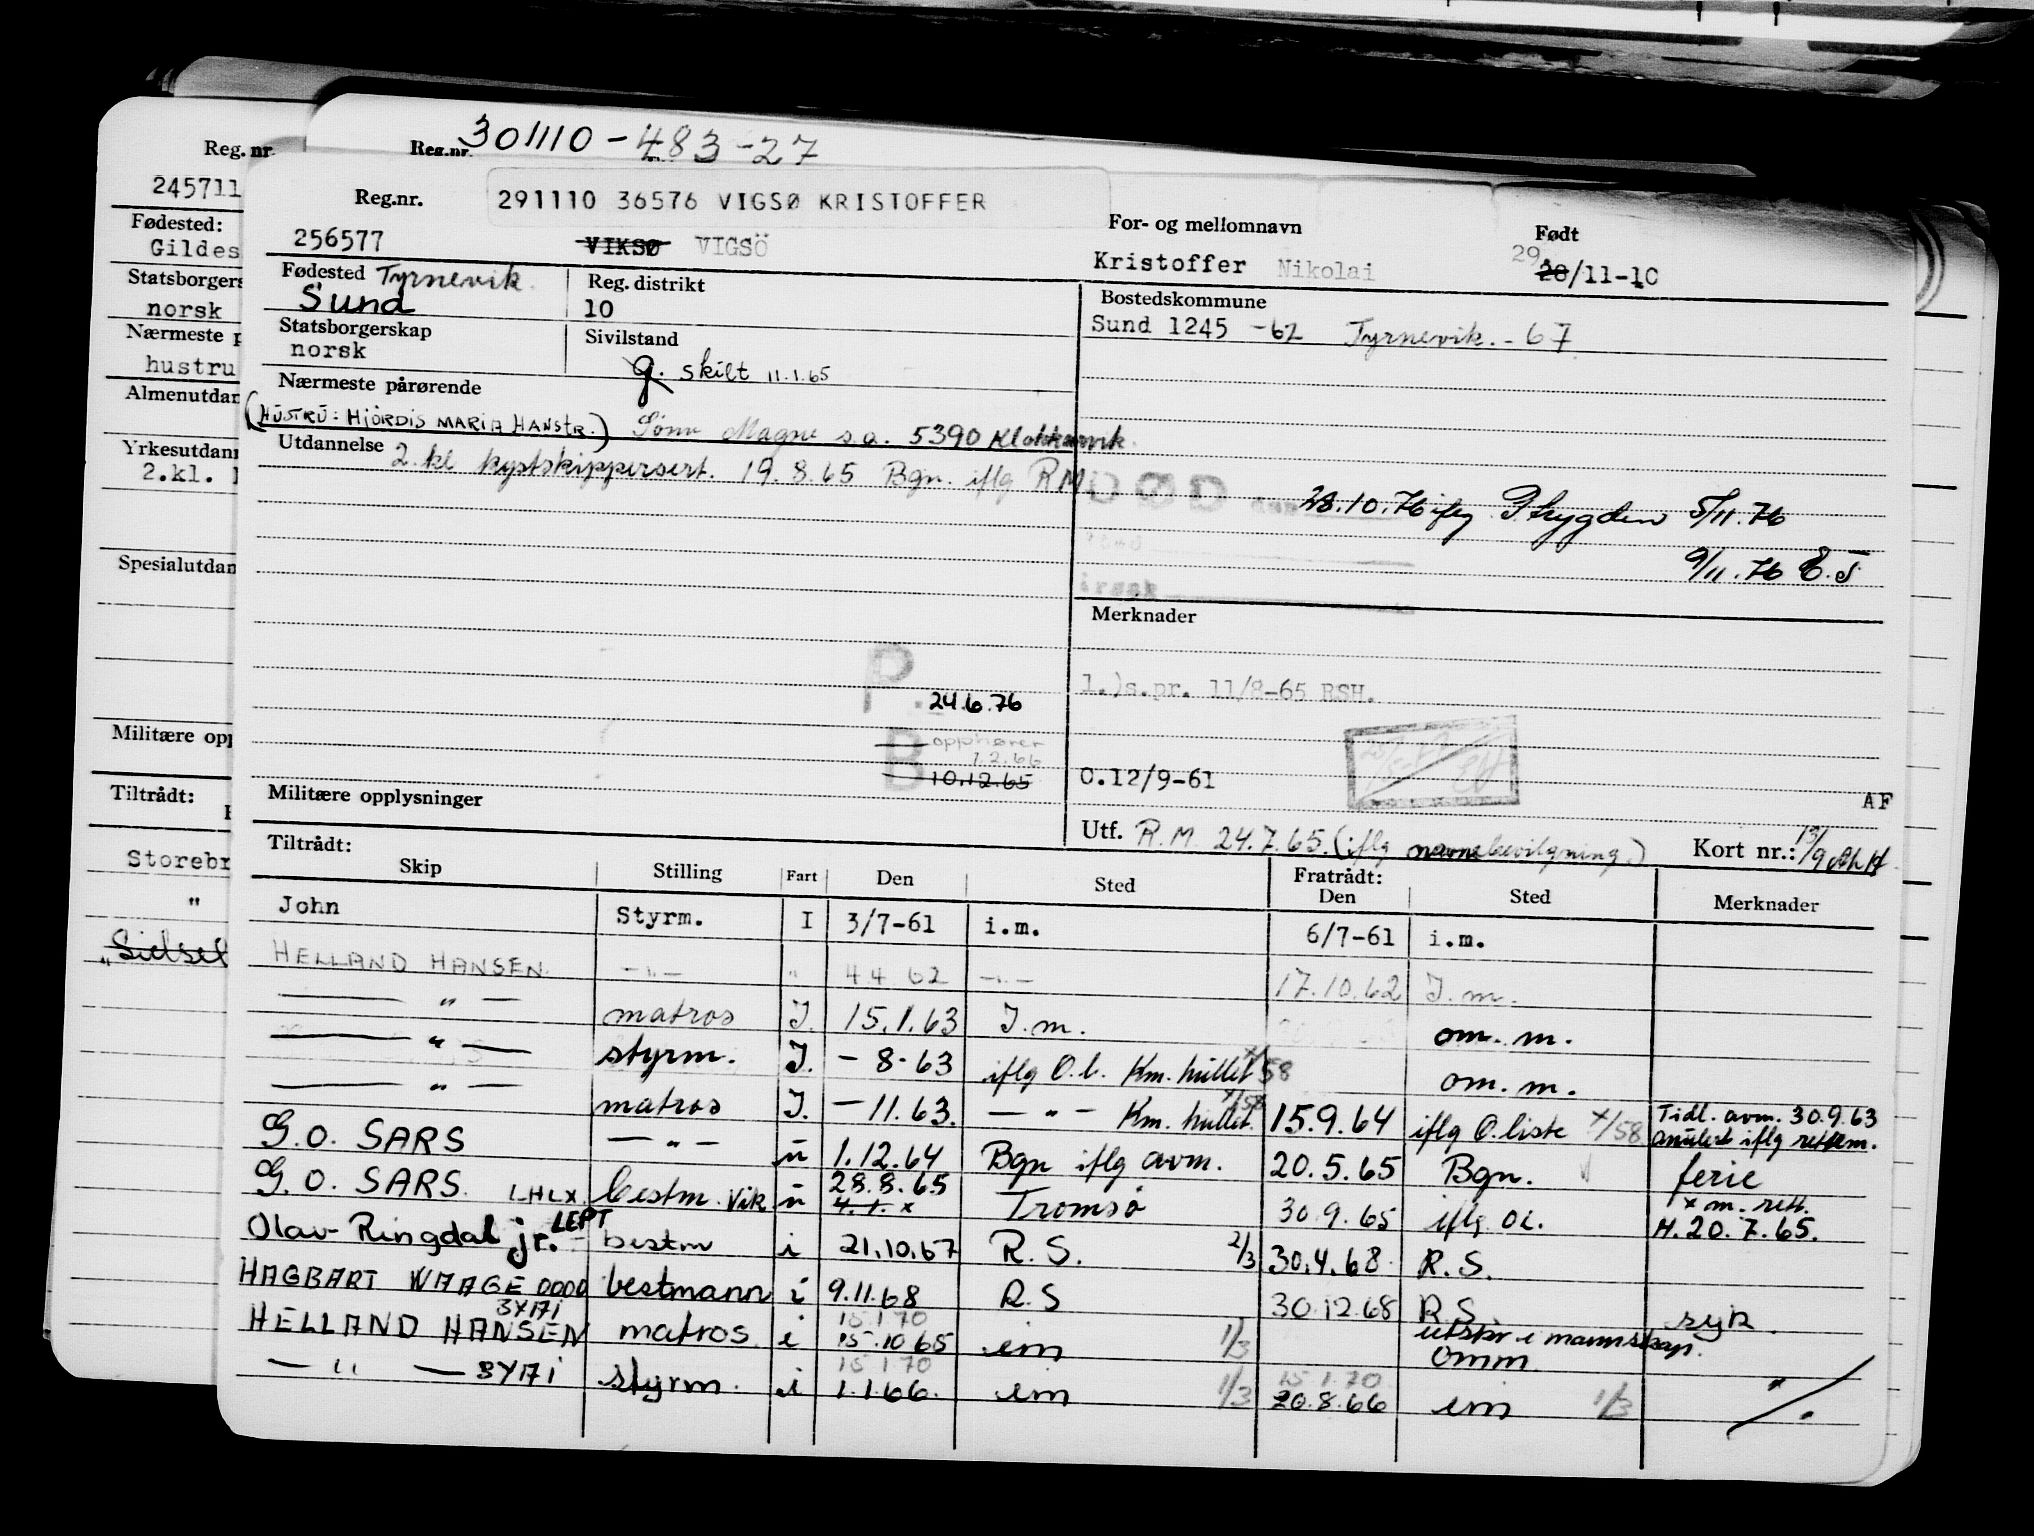 Reg.nr.
301110-483-27
Reg.nr
245711
Fødested:
Gildes
Statsborgers
norsk
Nærmeste p
hustru
Almenutdan
Yrkesutdann
2.kl.
Spesialutdan
Militære opp
Tiltrådt:
Storebr
"
Reg.nr.
291110 36576 VIGSØ KRISTOFFER
256577
VIKSØ VIGSÖ
For- og mellomnavn
Kristoffer Nikolai
Født
29
28/11-10
Fødested Tyrnevik.
Sund
Reg. distrikt
10
Bostedskommune
Sund 1245 -62 Tyrnevik. -67
Statsborgerskap
norsk
Sivilstand
g. skilt 11.1.65
Nærmeste pårørende
(HUSTRU: HJÖRDIS MARIA HANSTR.) Sönn Magne s.a. 5390 Klokkarvik.
Utdannelse 2. kl kystskippersert. 19.8.65 Bgn. iflg RM
DØD den 28.10.76 iflg P. trygden 5/11.76
9/11.76 E.S
årsak
Merknader
1.)s.pr. 11/8-65 RSH.
P. 24.6.76
opphører
1.2.66
B 10.12.65
O.12/9-61
AF
Militære opplysninger
Utf. R.M. 24.7.65. (iflg navnebevilgning.)
Kort nr.: 13/9
Tiltrådt:
Skip Stilling Fart Den Sted Fratrådt: Den Sted Merknader
John Styrm. I 3/7-61 i.m. 6/7-61 i.m.
HELLAND HANSEN -"- " 4.4 62 -"- 17.10.62 I.m.
— " — matros I. 15.1.63 I.m. om. m.
— " — styrm. I. - 8-63 iflg O.l. Km. hullet x/58 om. m.
— " — matros I. - 11.63. — " — Km. hullet. x/58 15.9.64 iflg O.liste x/58 Tidl. avm. 30.9.63
anulert iflg rettem.
G.O. SARS — " — u 1.12.64 Bgn iflg avm. 20.5.65 Bgn. ferie
G.O. SARS. LHLX. bestm. vik u 28.8.65 Tromsø 30.9.65 iflg OL. x m. rett.
4.1. x
H. 20.7.65.
Olav Ringdal jr. LEPT bestm i 21.10.67 R.S. 2/3 30.4.68. R.S.
HAGBART WAAGE bestmann i 9.11.68 R.S 30.12.68 R.S. syk.
3YAI
HELLAND HANSEN matros. i 15.10 65 im 1/3 utskr i mannskap.
15.1 70
omm
— " — 3YAI styrm. i 1.1.66. im 1/3 20.8.66 im 1/3 "
15 1 70
15.1.70